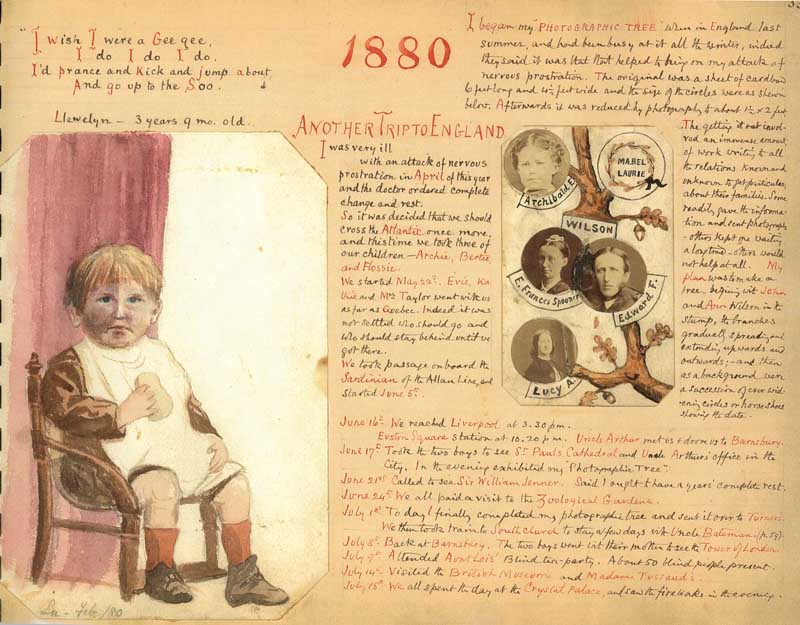 "I wish I were a Gee gee,
I do I do I do.
I'd prance and kick and jump about,
And go up to the Soo.
Llewelyn – 3 years 9 mo. old..
1880
I began my "PHOTOGRAPHIC TREE" when in England last
summer, and had been busy at it all the winter, indeed
they said it was that that helped to bring on my attack of
nervous prostration. The original was a sheet of cardboard
6 feet long and 4½ feet wide and the size of the circles were as shewn
below. Afterwards it was reduced by photography to about 1½ x 2 feet
ANOTHER TRIP TO ENGLAND
I was very ill
with an attack of nervous
prostration in April of this year
and the doctor ordered complete
change and rest.
So it was decided that we should
cross the Atlantic once more,
and this time we took three of
our children – Archie, Bertie
and Flossie.
We started May 29th. Evie, Ka
thie and Mrs Taylor went with us
as far as Quebec. Indeed it was
not settled who should go and
who should stay behind until we
got there.
We took passage on board the
Sardinian of the Allan Line, and
started June 5th.
Archibald E.
MABEL
LAURIE
WILSON
E. Frances Spooner
Edward F.
Lucy A.
The getting it out invol-
ved an immense amount
of work writing to all
the relations known and
unknown to get particulars
about their families. Some
readily gave the informa-
tion and sent photographs
– others kept one waiting
a long time – others would
not help at all. My
plan was to make a
tree, begining with John
and Ann Wilson in the
stump, the branches
gradually spreading and
extending upwards and
outwards; – and then
as a background were
a succession of ever wid-
ening circles or horse shoes
showing the date.
June 16th. We reached Liverpool at 3.30 p.m.
Euston Square station at 10.20 p.m. Uncle Arthur met us & drove us to Barnsbury.
June 17th Took the two boys to see St. Pauls Cathedral and Uncle Arthur's office in the
City. In the evening exhibited my "Photographic Tree".
June 21st Called to see Sir William Jenner. Said I ought to have a years' complete rest.
June 24th We all paid a visit to the Zoological Gardens.
July 1st To day I finally completed my photographic tree and sent it over to Turners.
We then took train to Southchurch to stay a few days with Uncle Bateman (p. 59).
July 8th Back at Barnsbury. The two boys went with their mother to see the Tower of London.
July 9th Attended Aunt Lois' Blind tea-party. About 50 blind people present.
July 14th Visited the British Museum and Madame Tussaud's.
July 15th We all spent the day at the Crystal Palace, and saw the fireworks in the evening.
Feb. /80